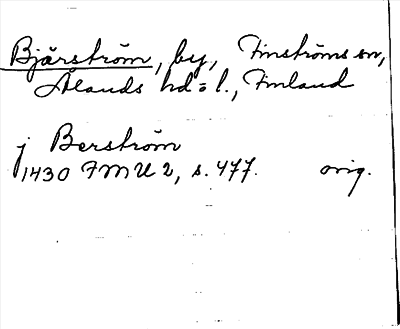 Bjärström, by, Finströms sn,
Ålands hd = l., Finland
j Berström
1430 FMU 2, s. 477. orig.